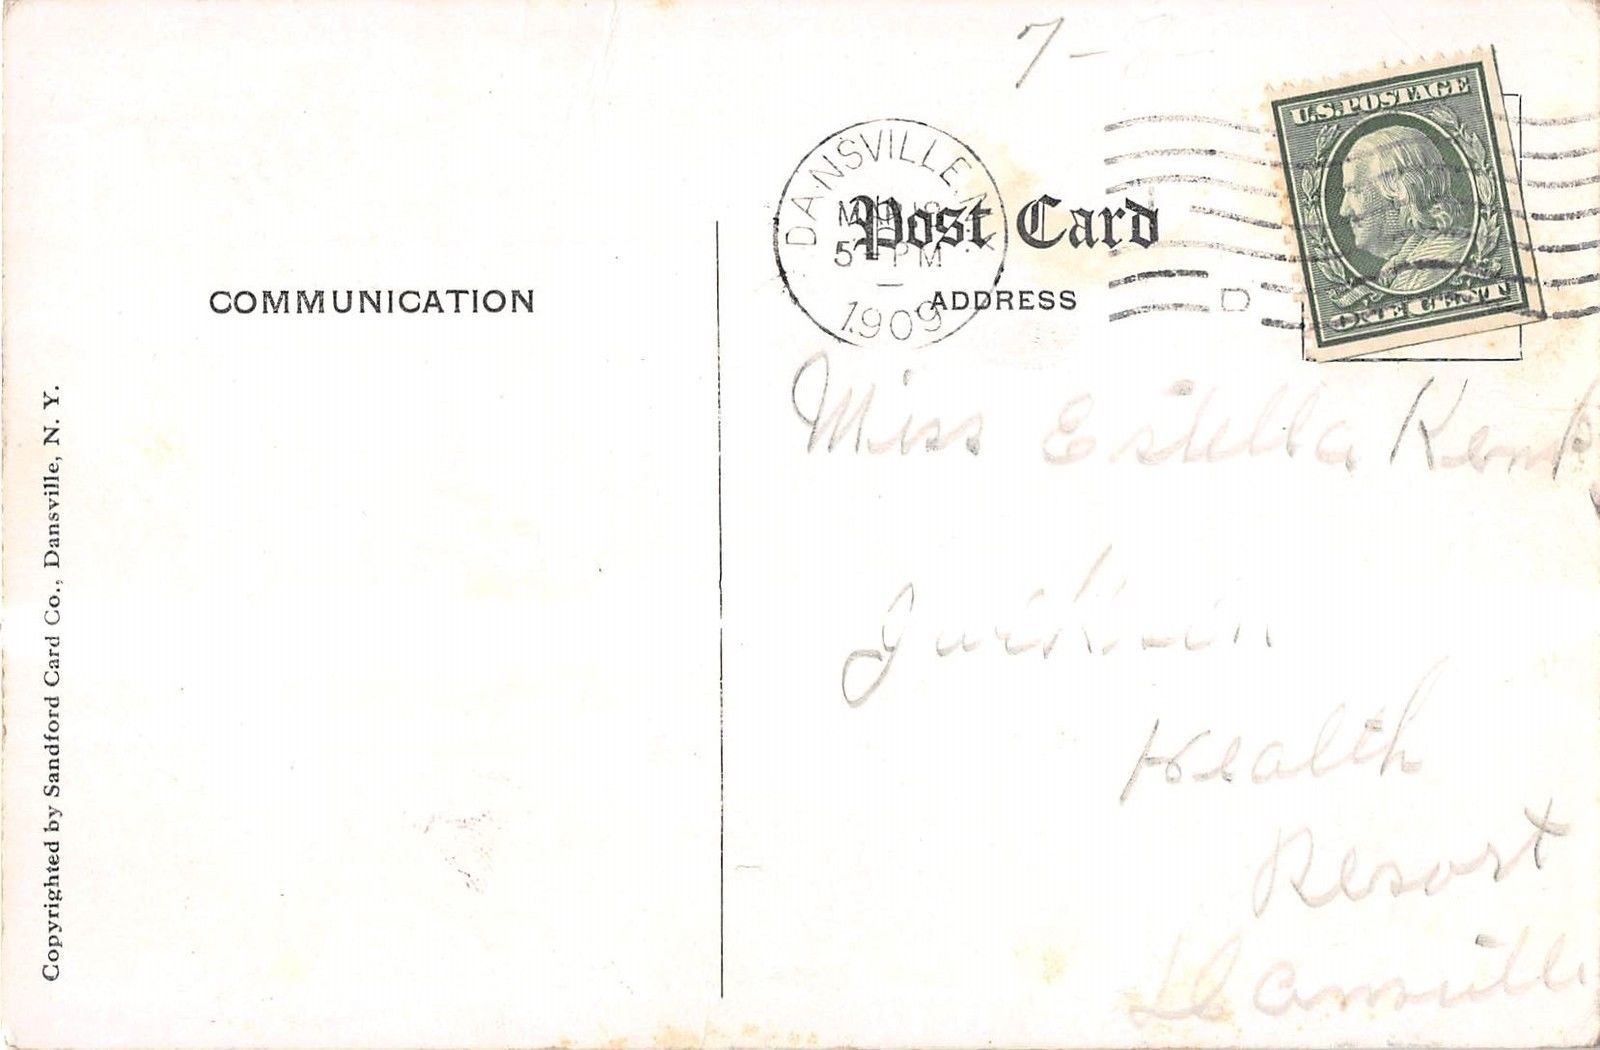 7-
U.S. POSTAGE
ONE CENT
DANSVILLE, N.Y.
5 - PM
1909
D
Post Card
COMMUNICATION
ADDRESS
Miss Estella Kemp
Health
Resort
Dansville
Copyrighted by Sandford Card Co., Dansville, N. Y.